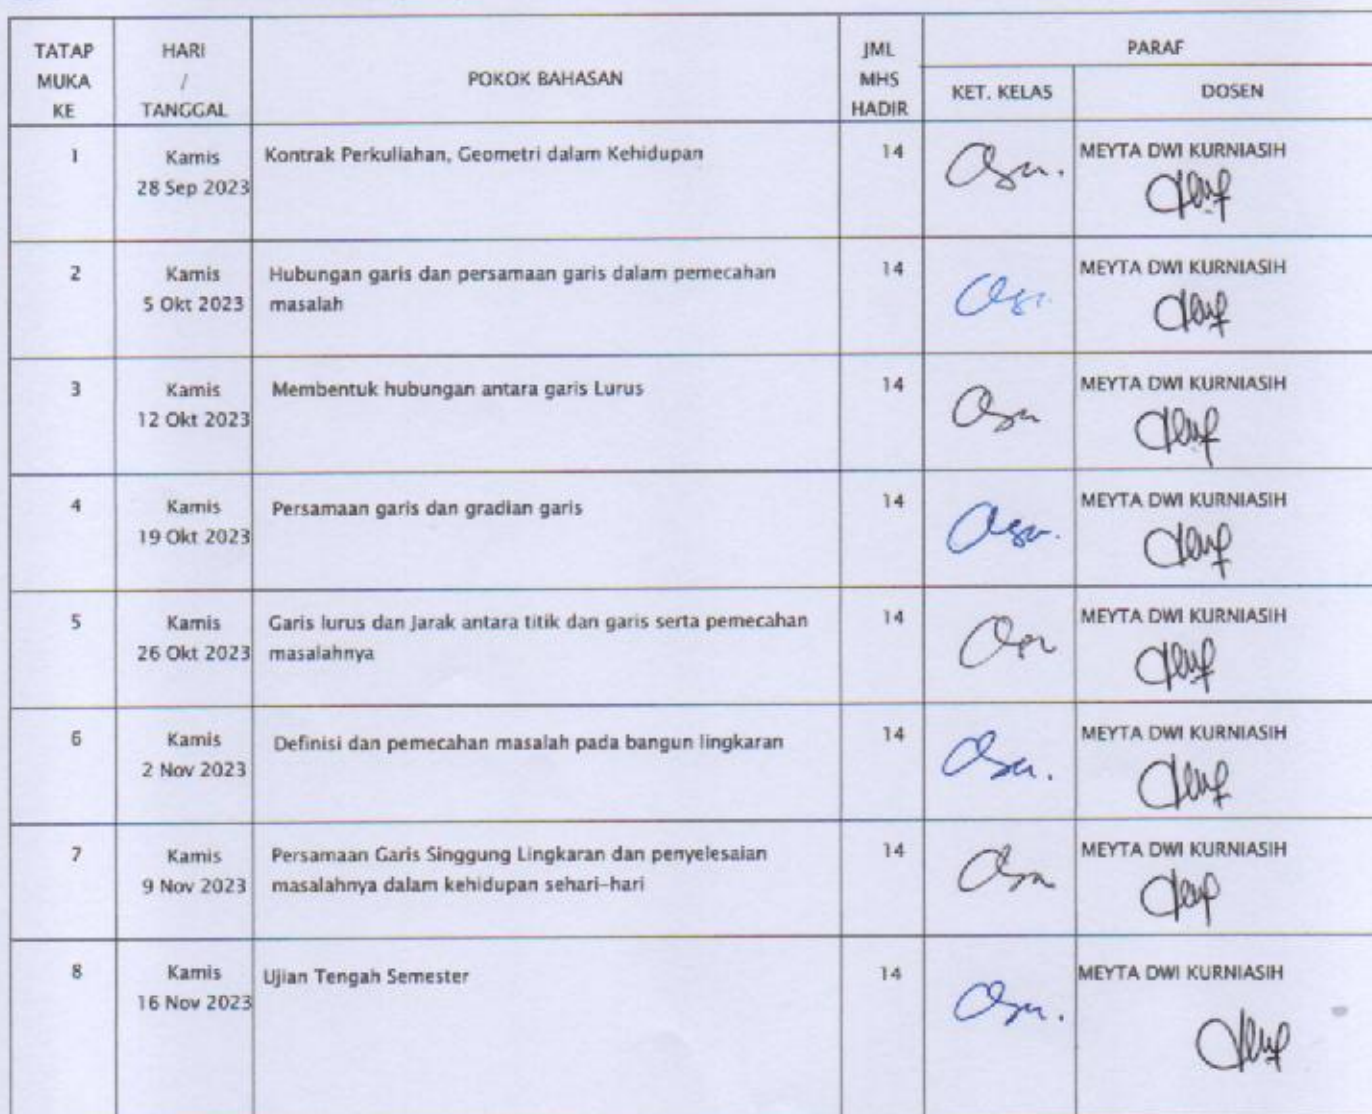 TATAP
MUKA
KE
HARI
/
TANGGAL
POKOK BAHASAN
JML
MHS
HADIR
PARAF
KET. KELAS
DOSEN
1
Kamis
28 Sep 2023
Kontrak Perkuliahan, Geometri dalam Kehidupan
14
MEYTA DWI KURNIASIH
2
Kamis
5 Okt 2023
Hubungan garis dan persamaan garis dalam pemecahan
masalah
14
MEYTA DWI KURNIASIH
3
Kamis
12 Okt 2023
Membentuk hubungan antara garis Lurus
14
MEYTA DWI KURNIASIH
4
Kamis
19 Okt 2023
Persamaan garis dan gradian garis
14
MEYTA DWI KURNIASIH
5
Kamis
26 Okt 2023
Garis lurus dan Jarak antara titik dan garis serta pemecahan
masalahnya
14
MEYTA DWI KURNIASIH
6
Kamis
2 Nov 2023
Definisi dan pemecahan masalah pada bangun lingkaran
14
MEYTA DWI KURNIASIH
7
Kamis
9 Nov 2023
Persamaan Garis Singgung Lingkaran dan penyelesaian
masalahnya dalam kehidupan sehari-hari
14
MEYTA DWI KURNIASIH
8
Kamis
16 Nov 2023
Ujian Tengah Semester
14
MEYTA DWI KURNIASIH